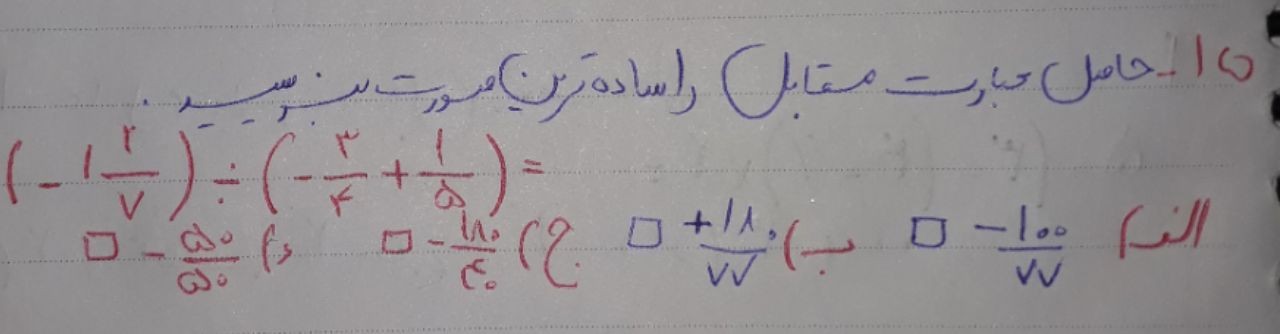 ۱۵- حاصل عبارت مقابل را ساده ترین صورت بنویسید.
(-۱ ۲/۷) ÷ (-۳/۴ + ۱/۵) =
الف) -۱۰۰/۷۷ □ ب) +۱۸۰/۷۷ □ ج) -۱۸۰/۴۰ □ د) -۵۰/۵۰ □